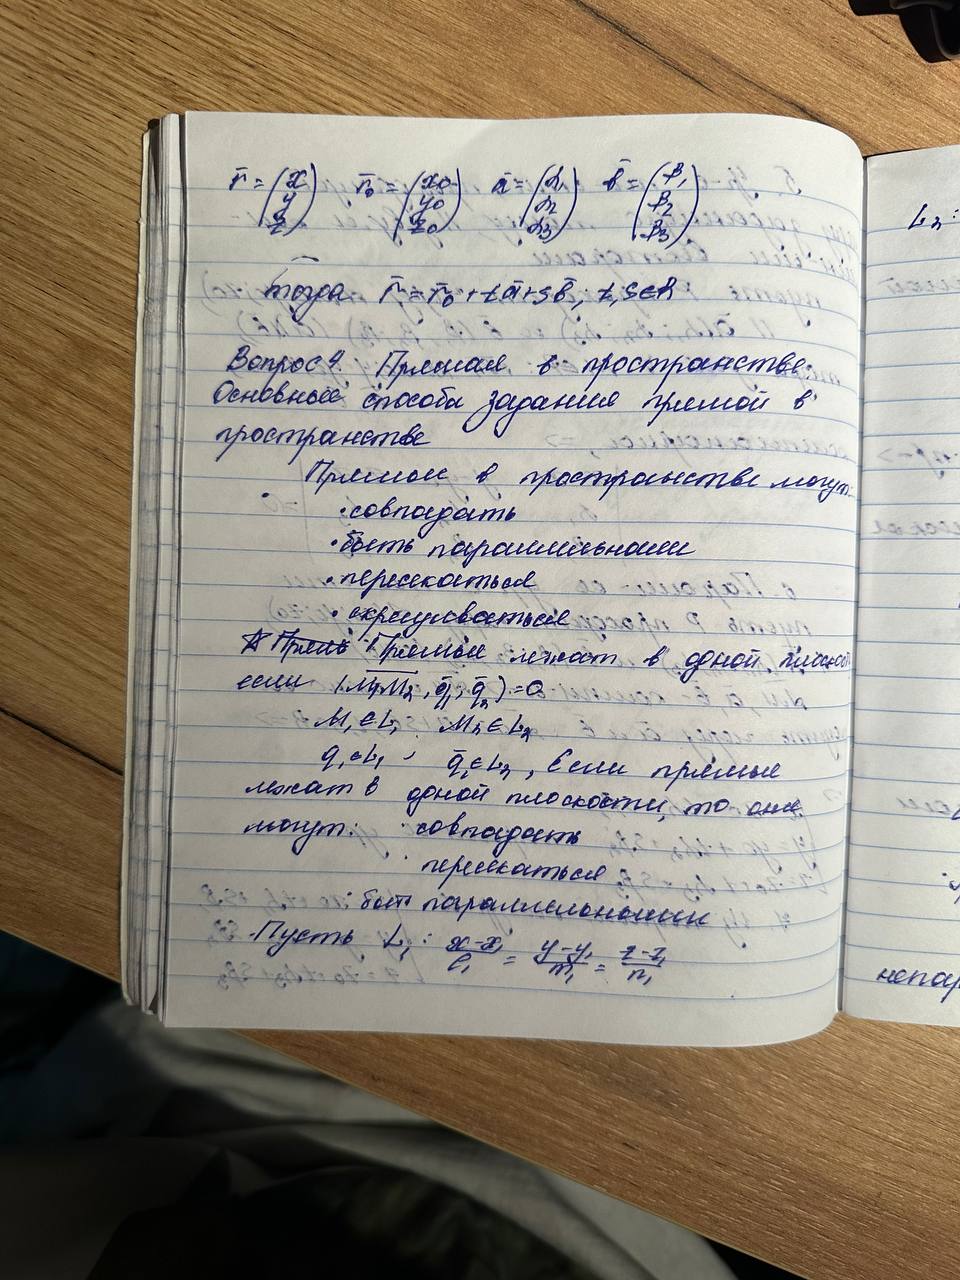 r̄ = (x y z) r̄₀ = (x₀ y₀ z₀) ā = (α₁ α₂ α₃) b̄ = (β₁ β₂ β₃)
тогда r̄ = r̄₀ + tā + sb̄, t,s∈R
Вопрос 4. Прямая в пространстве.
Основные способа задания прямой в
пространстве
Прямые в пространстве могут:
• совпадать
• быть параллельными
• пересекаться
• скрещиваться
Прямые лежат в одной плоскост
если (M₁M₂, q̄₁, q̄₂) = 0
M₁ ∈ L₁ M₂ ∈ L₂
q̄₁ ∈ L₁, q̄₂ ∈ L₂, Если прямые
лежат в одной плоскости, то они
могут: • совпадать
• пересекаться
• быть параллельными
Пусть L₁: (x-x₁)/l₁ = (y-y₁)/m₁ = (z-z₁)/n₁
L₂:
непар